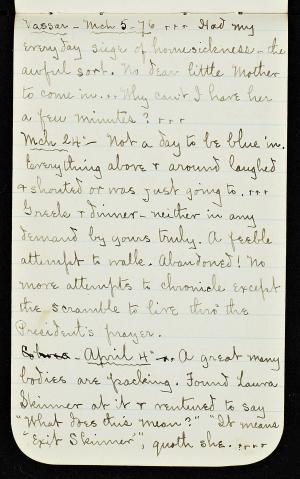 Vassar - Mch 5 - 76 ... Had my
everyday siege of homesickness - the
awful sort. No dear little Mother
to come in... Why can't I have her
a few minutes? ...
Mch 24th - Not a day to be blue in.
Everything above & around laughed
& shouted or was just going to. ...
Greek & dinner - neither in any
demand by yours truly. A feeble
attempt to walk. Abandoned! No
more attempts to chronicle except
the scramble to live thro' the
President's prayer.
April 4th ... A great many
bodies are packing. Found Laura
Skinner at it & ventured to say
"What does this mean?" "It means
'Exit Skinner'", quoth she. ....